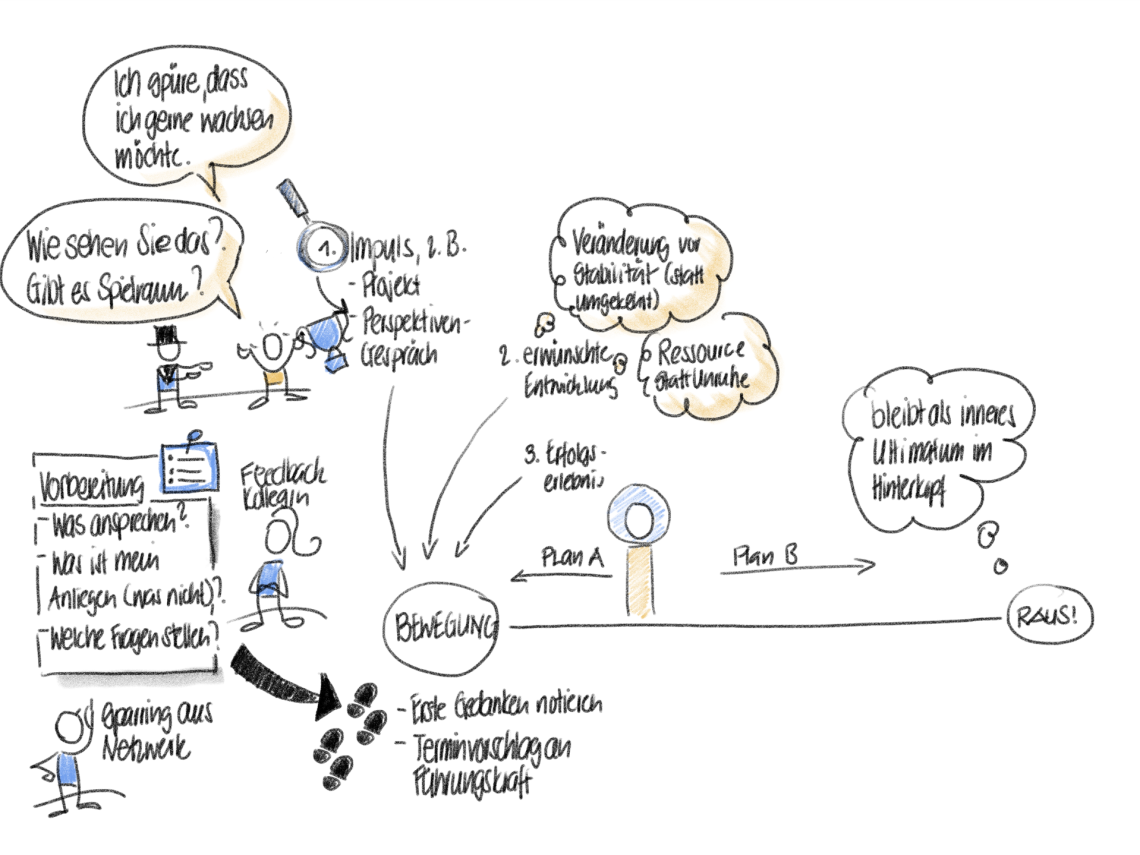 Ich spüre, dass
ich gerne wachsen
möchte.
Wie sehen Sie das?
Gibt es Spielraum?
1. Impuls, z.B.
- Projekt
- Perspektiven-
Gespräch
2. erwünschte
Entwicklung
Veränderung vor
Stabilität (statt
umgekehrt)
Ressource
statt Unruhe
3. Erfolgs-
erlebnis
bleibt als inneres
Ultimatum im
Hinterkopf
Plan A
Plan B
BEWEGUNG
RAUS!
Vorbereitung
- Was ansprechen?
- Was ist mein
Anliegen (was nicht)?
- Welche Fragen stellen?
Feedback
Kollegin
Sparring aus
Netzwerk
- Erste Gedanken notieren
- Terminvorschlag an
Führungskraft